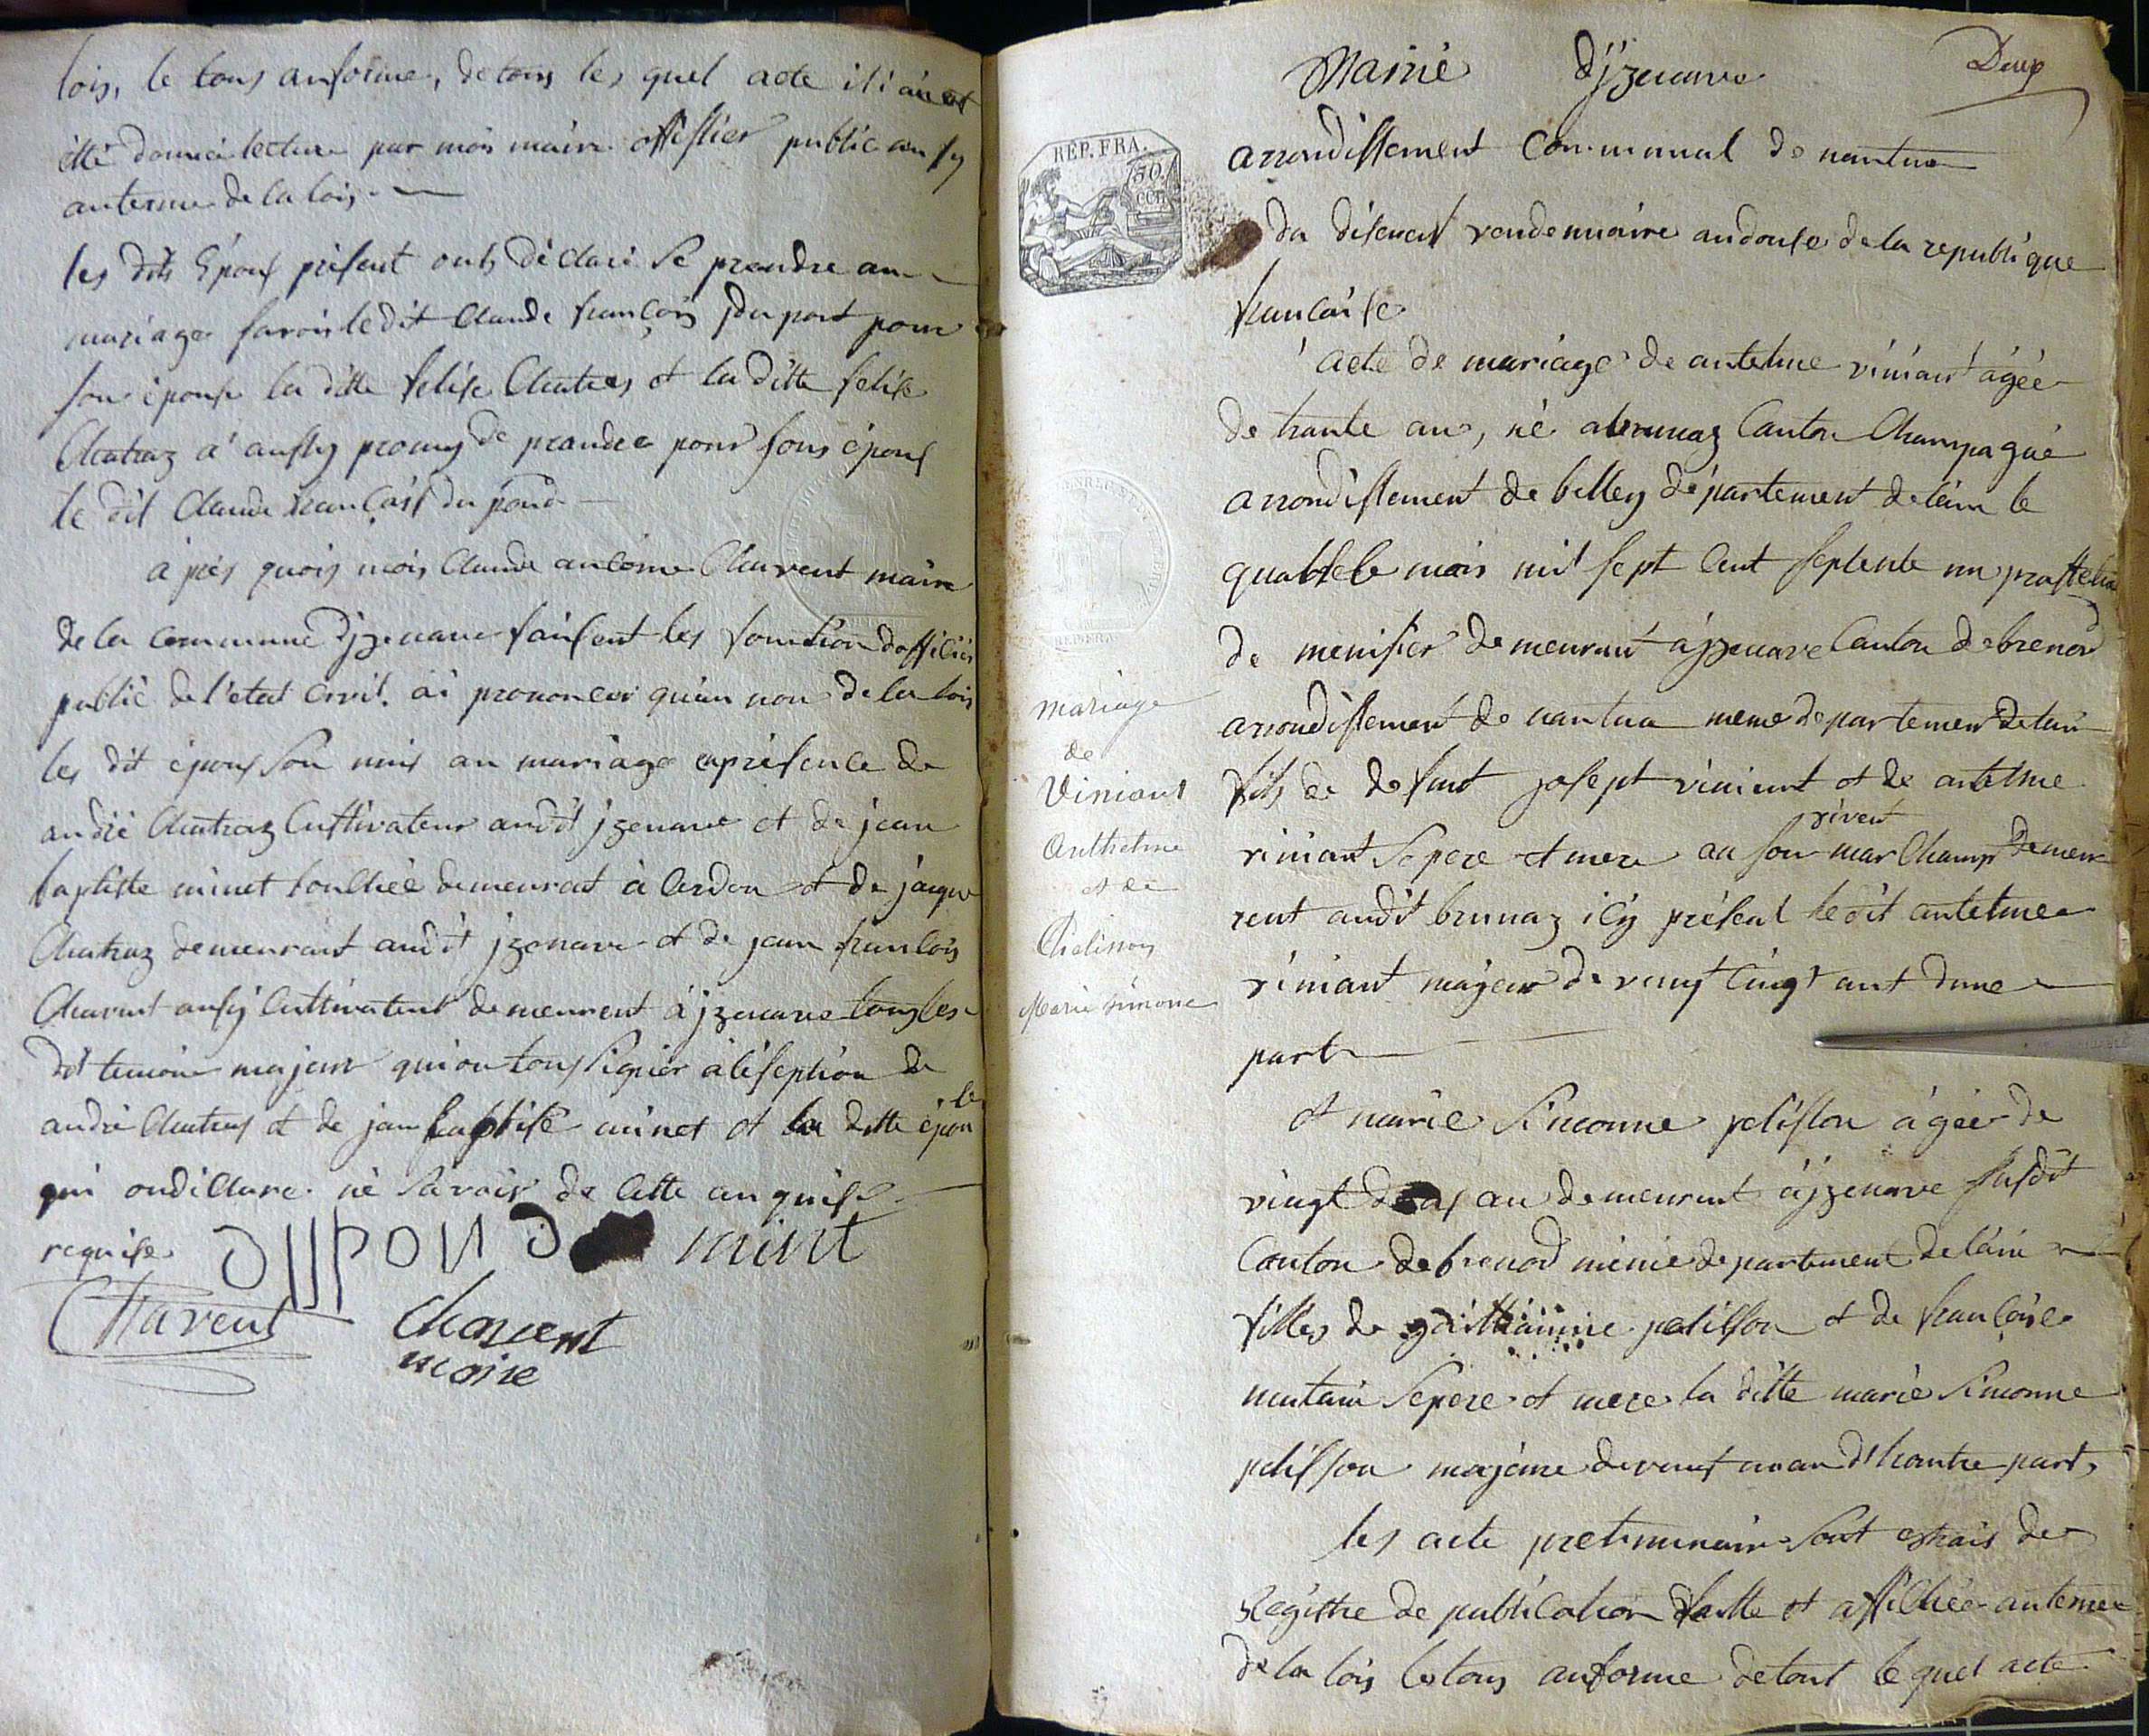 lois, le tous anforme, de tous les quel acte il i aiet
etté donné lecture par mois maire offissier public ausy
anterme de la lois
les dits Epous présent onts déclaré se prendre an
mariage savoir le dit Claude françois du port pour
son épouse la ditte felise Chatras et la ditte felise
Chatraz a aussy promy de prandre pour sons épous
le dit Claude françois du pond
après quois mois Claude antoine Charvent maire
de la Commune d'jzenave faisent les fonction d'officié
public de l'etat Civil. ai prononcer qu'au non de la lois
les dit épous son unis an mariage en présence de
andré Chatraz Cultivateur audit jzenave et de jean
baptiste minet demeurat à Cerdon et de jacque
Chatraz demeurant audit jzenave et de jean francois
Charvent ausy Cultivateur demeurent à jzenave tous les
dit temoin majeur qui on tous signier à l'eseption de
andré Chatras et de jean baptiste minet et la ditte épouse
qui on déclare né savoir de cette an quise
requise
DUPOND minet
Charvent
Charvent
maire
Mairie d'jzenave
Deux
REP. FRA.
50.
CEN.
arrondissement Communal de nantua
du disneuf vendemiaire an douse de la republique
francaise
acte de mariage de antelme viniant agée
de trante an, né a brenaz Canton Champagne
arrondissement de belley département de l'ain le
mois mil sept cent septente un
de menisier demeurant à jzenave Canton de brenod
arrondissement de nantua meme departement de l'ain
fils de defunt josept viniant et de antelme
vivent
viniant se pere et mere an son mar Champ demeu
rent audit brenaz icy présent ledit antelme
viniant majeur de vingt cinq ant d'une
part
mariage
de
Viniant
Anthelme
et de
Pelisson
Marie simone
et marie Simonne pelisson agée de
vingt deux an demeurant à jzenave susdit
Canton de brenod meme departement de l'ain
filles de guilliaume pelisson et de francoise
mutain se pere et mere la ditte marie Simonne
pelisson majeure de vingt un an d'hautre part,
les acte preliminaire sont estrais de
Registre de publication faitte et affichée anterme
de la lois le tous anforme de tout le quel acte